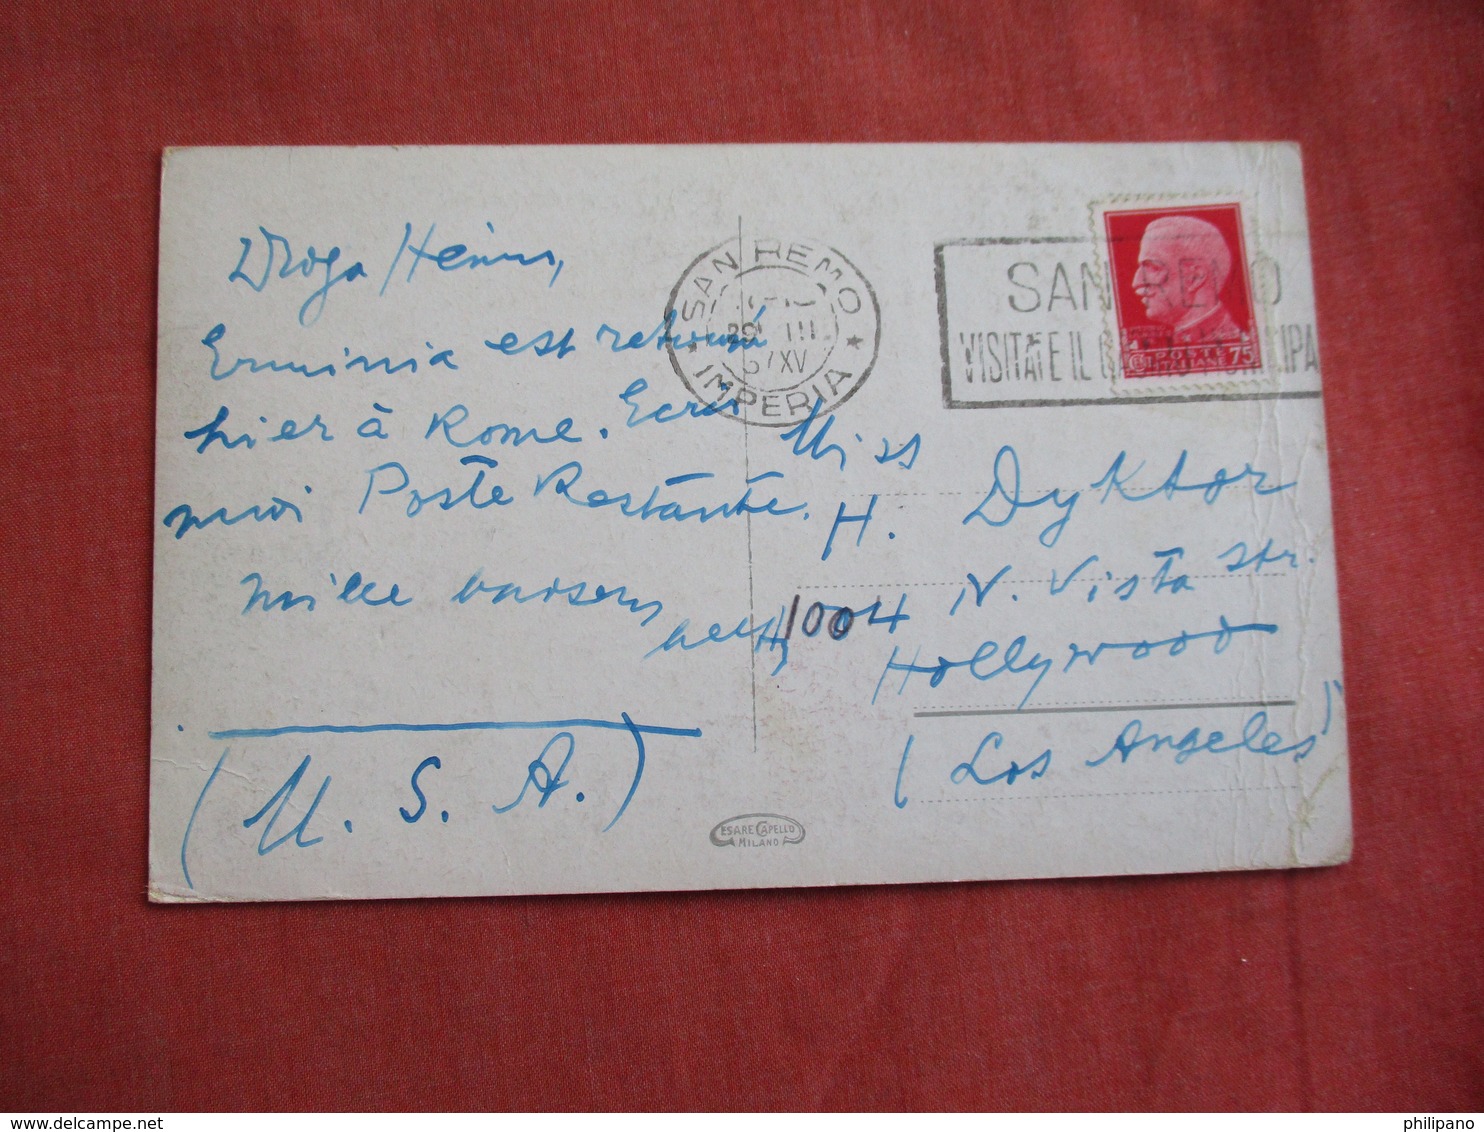 Droga
Erminia est retourné
hier à Rome. Ecris
moi Poste Restante.
mille baisers
SAN REMO
III
37 XV
IMPERIA
SAN REMO
VISITATE IL
POSTE
ITALIANE 75
Miss
H. Dyktor
1004 N. Vista Str.
Hollywood
(Los Angeles)
(U. S. A.)
CESARE CAPELLO
MILANO
www.delcampe.net
philipano